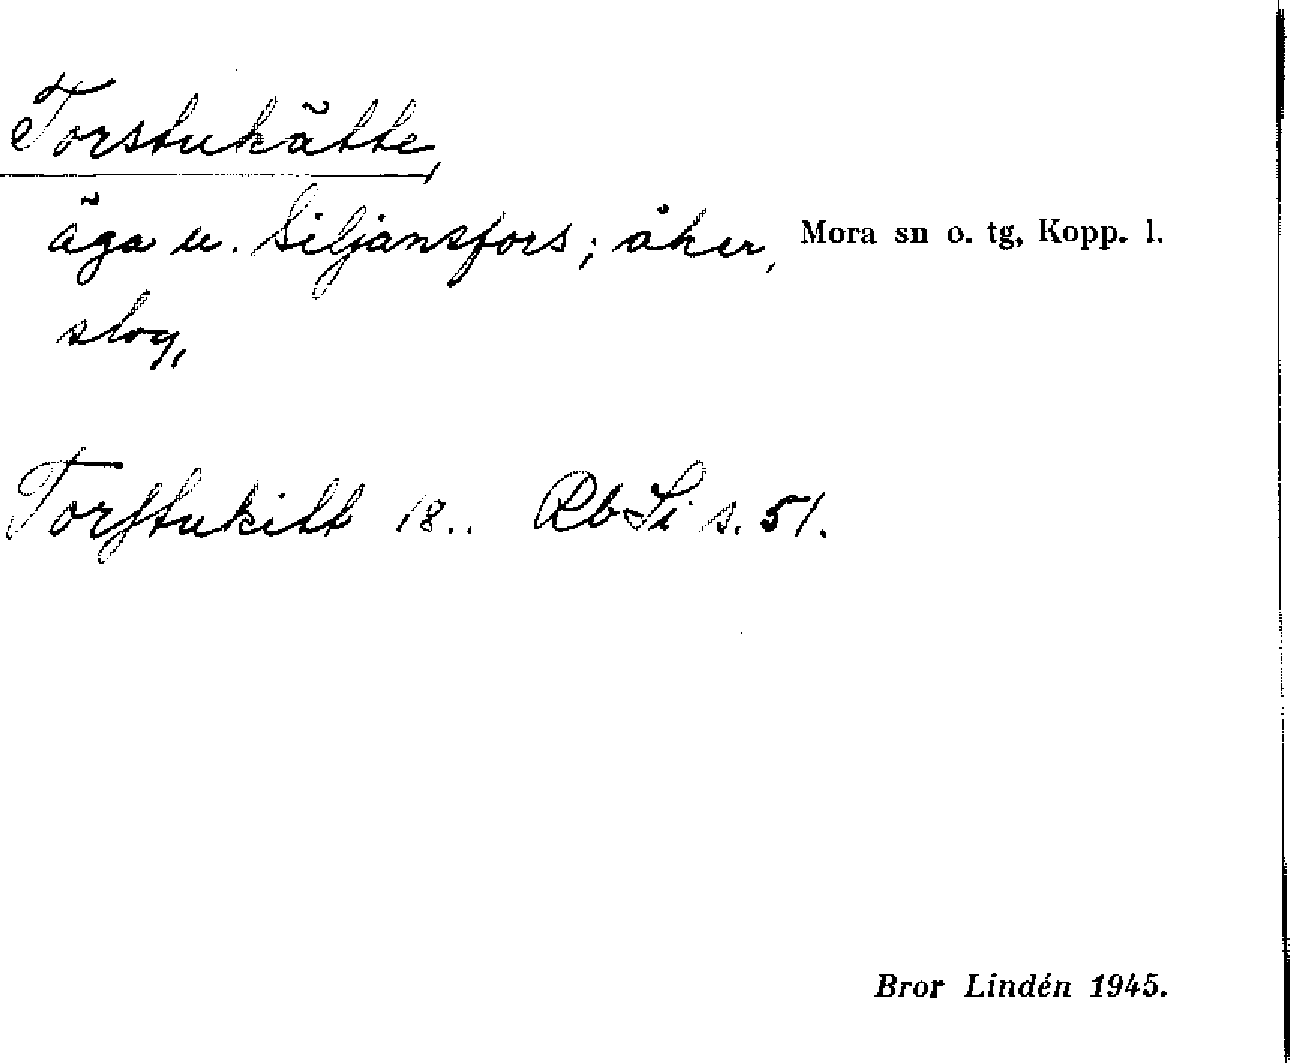 Torstukätte,
äga u. Siljansfors; åker, Mora sn o. tg, Kopp. l.
slog,
Torstukitt 18.. Rb Si s. 51.
Bror Lindén 1945.